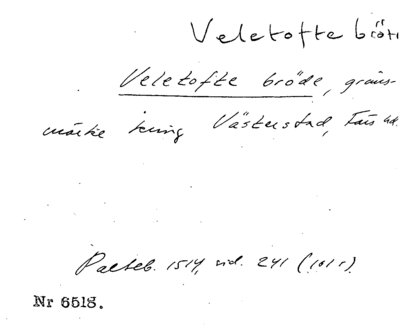 Veletofte bröd
Veletofte bröde, gräns-
märke kring Västerstad, Färs hd.
Palteb. 1514, sid. 241 (101 r)
Nr 6518.